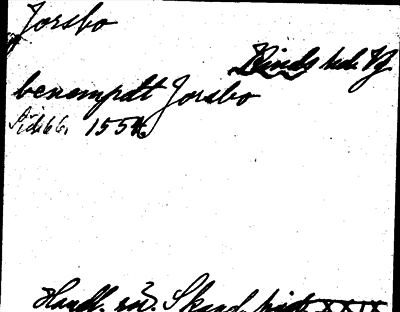 Jorsbo
Binds hd. Vg
benempdt Jorsbo
1554
Handl. rör. Skand. hist. XXIX